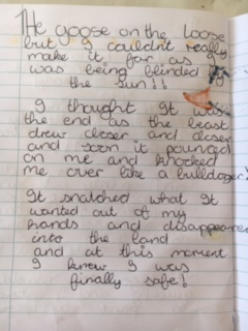 The goose on the loose
but I couldnt really
make it far as I
was being blinded by
the sun!!
I thought It was
the end as the beast
drew closer and closer
and soon it pounced
on me and knocked
me over like a bulldozer!
It snatched what It
wanted out of my
hands and disappeared
into the land
and at this moment
I knew I was
finally safe!